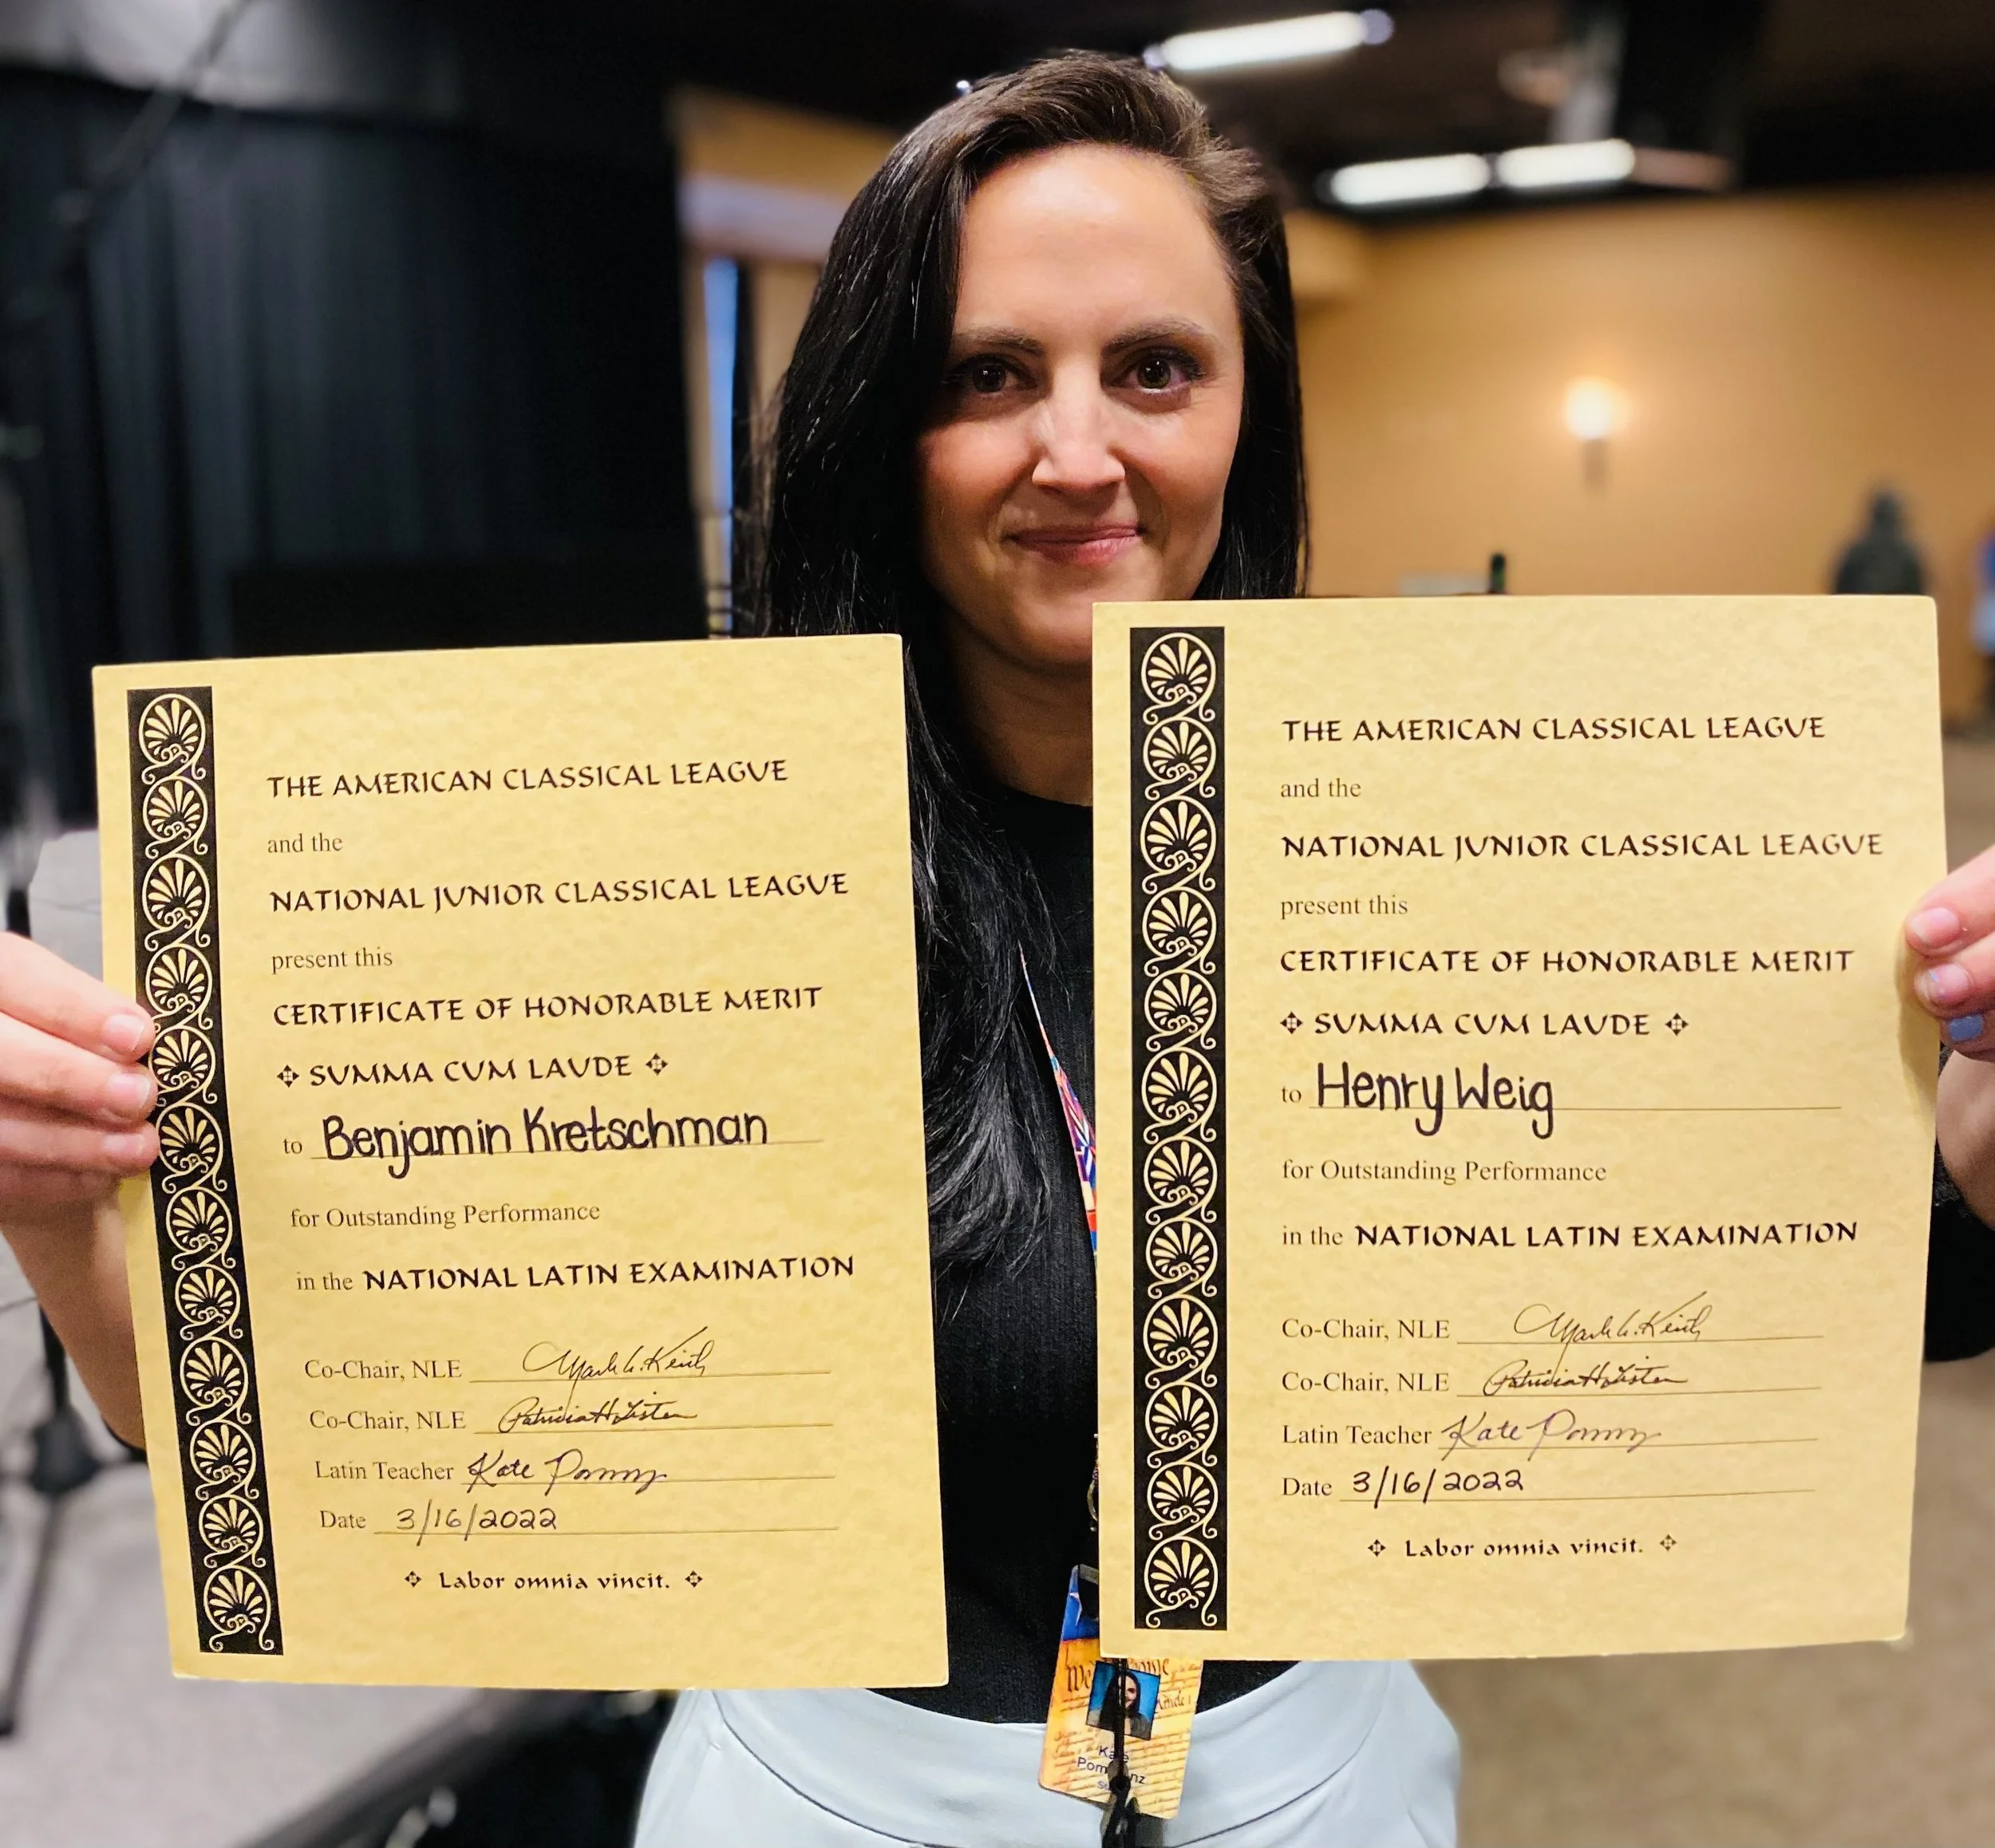 THE AMERICAN CLASSICAL LEAGUE
and the
NATIONAL JUNIOR CLASSICAL LEAGUE
present this
CERTIFICATE OF HONORABLE MERIT
SUMMA CUM LAUDE
to Benjamin Kretschman
for Outstanding Performance
in the NATIONAL LATIN EXAMINATION
Co-Chair, NLE
Co-Chair, NLE
Latin Teacher Kate
Date 3/16/2022
Labor omnia vincit.
THE AMERICAN CLASSICAL LEAGUE
and the
NATIONAL JUNIOR CLASSICAL LEAGUE
present this
CERTIFICATE OF HONORABLE MERIT
SUMMA CUM LAUDE
to Henry Weig
for Outstanding Performance
in the NATIONAL LATIN EXAMINATION
Co-Chair, NLE
Co-Chair, NLE
Latin Teacher Kate
Date 3/16/2022
Labor omnia vincit.
We